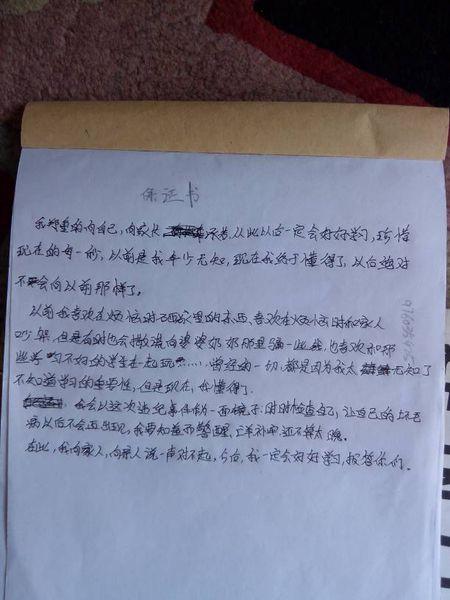 保证书
我郑重的向自己,向家长承诺,从此以后一定会好好学习,珍惜
现在的每一秒,以前是我年少无知,现在我终于懂得了,以后绝对
不会向以前那样了。
以前我喜欢在烦恼时砸家里的东西,喜欢在烦恼时和家人
吵架,但是有时也会撒谎向婆婆奶奶那里骗一些钱,也喜欢和那
些学习不好的学生在一起玩……曾经的一切,都是因为我太无知了
不知道学习的重要性,但是现在,我懂得了。
我会以这次出走事件作为一面镜子,时时检查自己,让自己的坏毛
病以后不会再出现,我要知羞而警醒,亡羊补牢还不算太晚。
在此,我向家人,向亲人说一声对不起,今后,我一定会好好学习,报答你们。